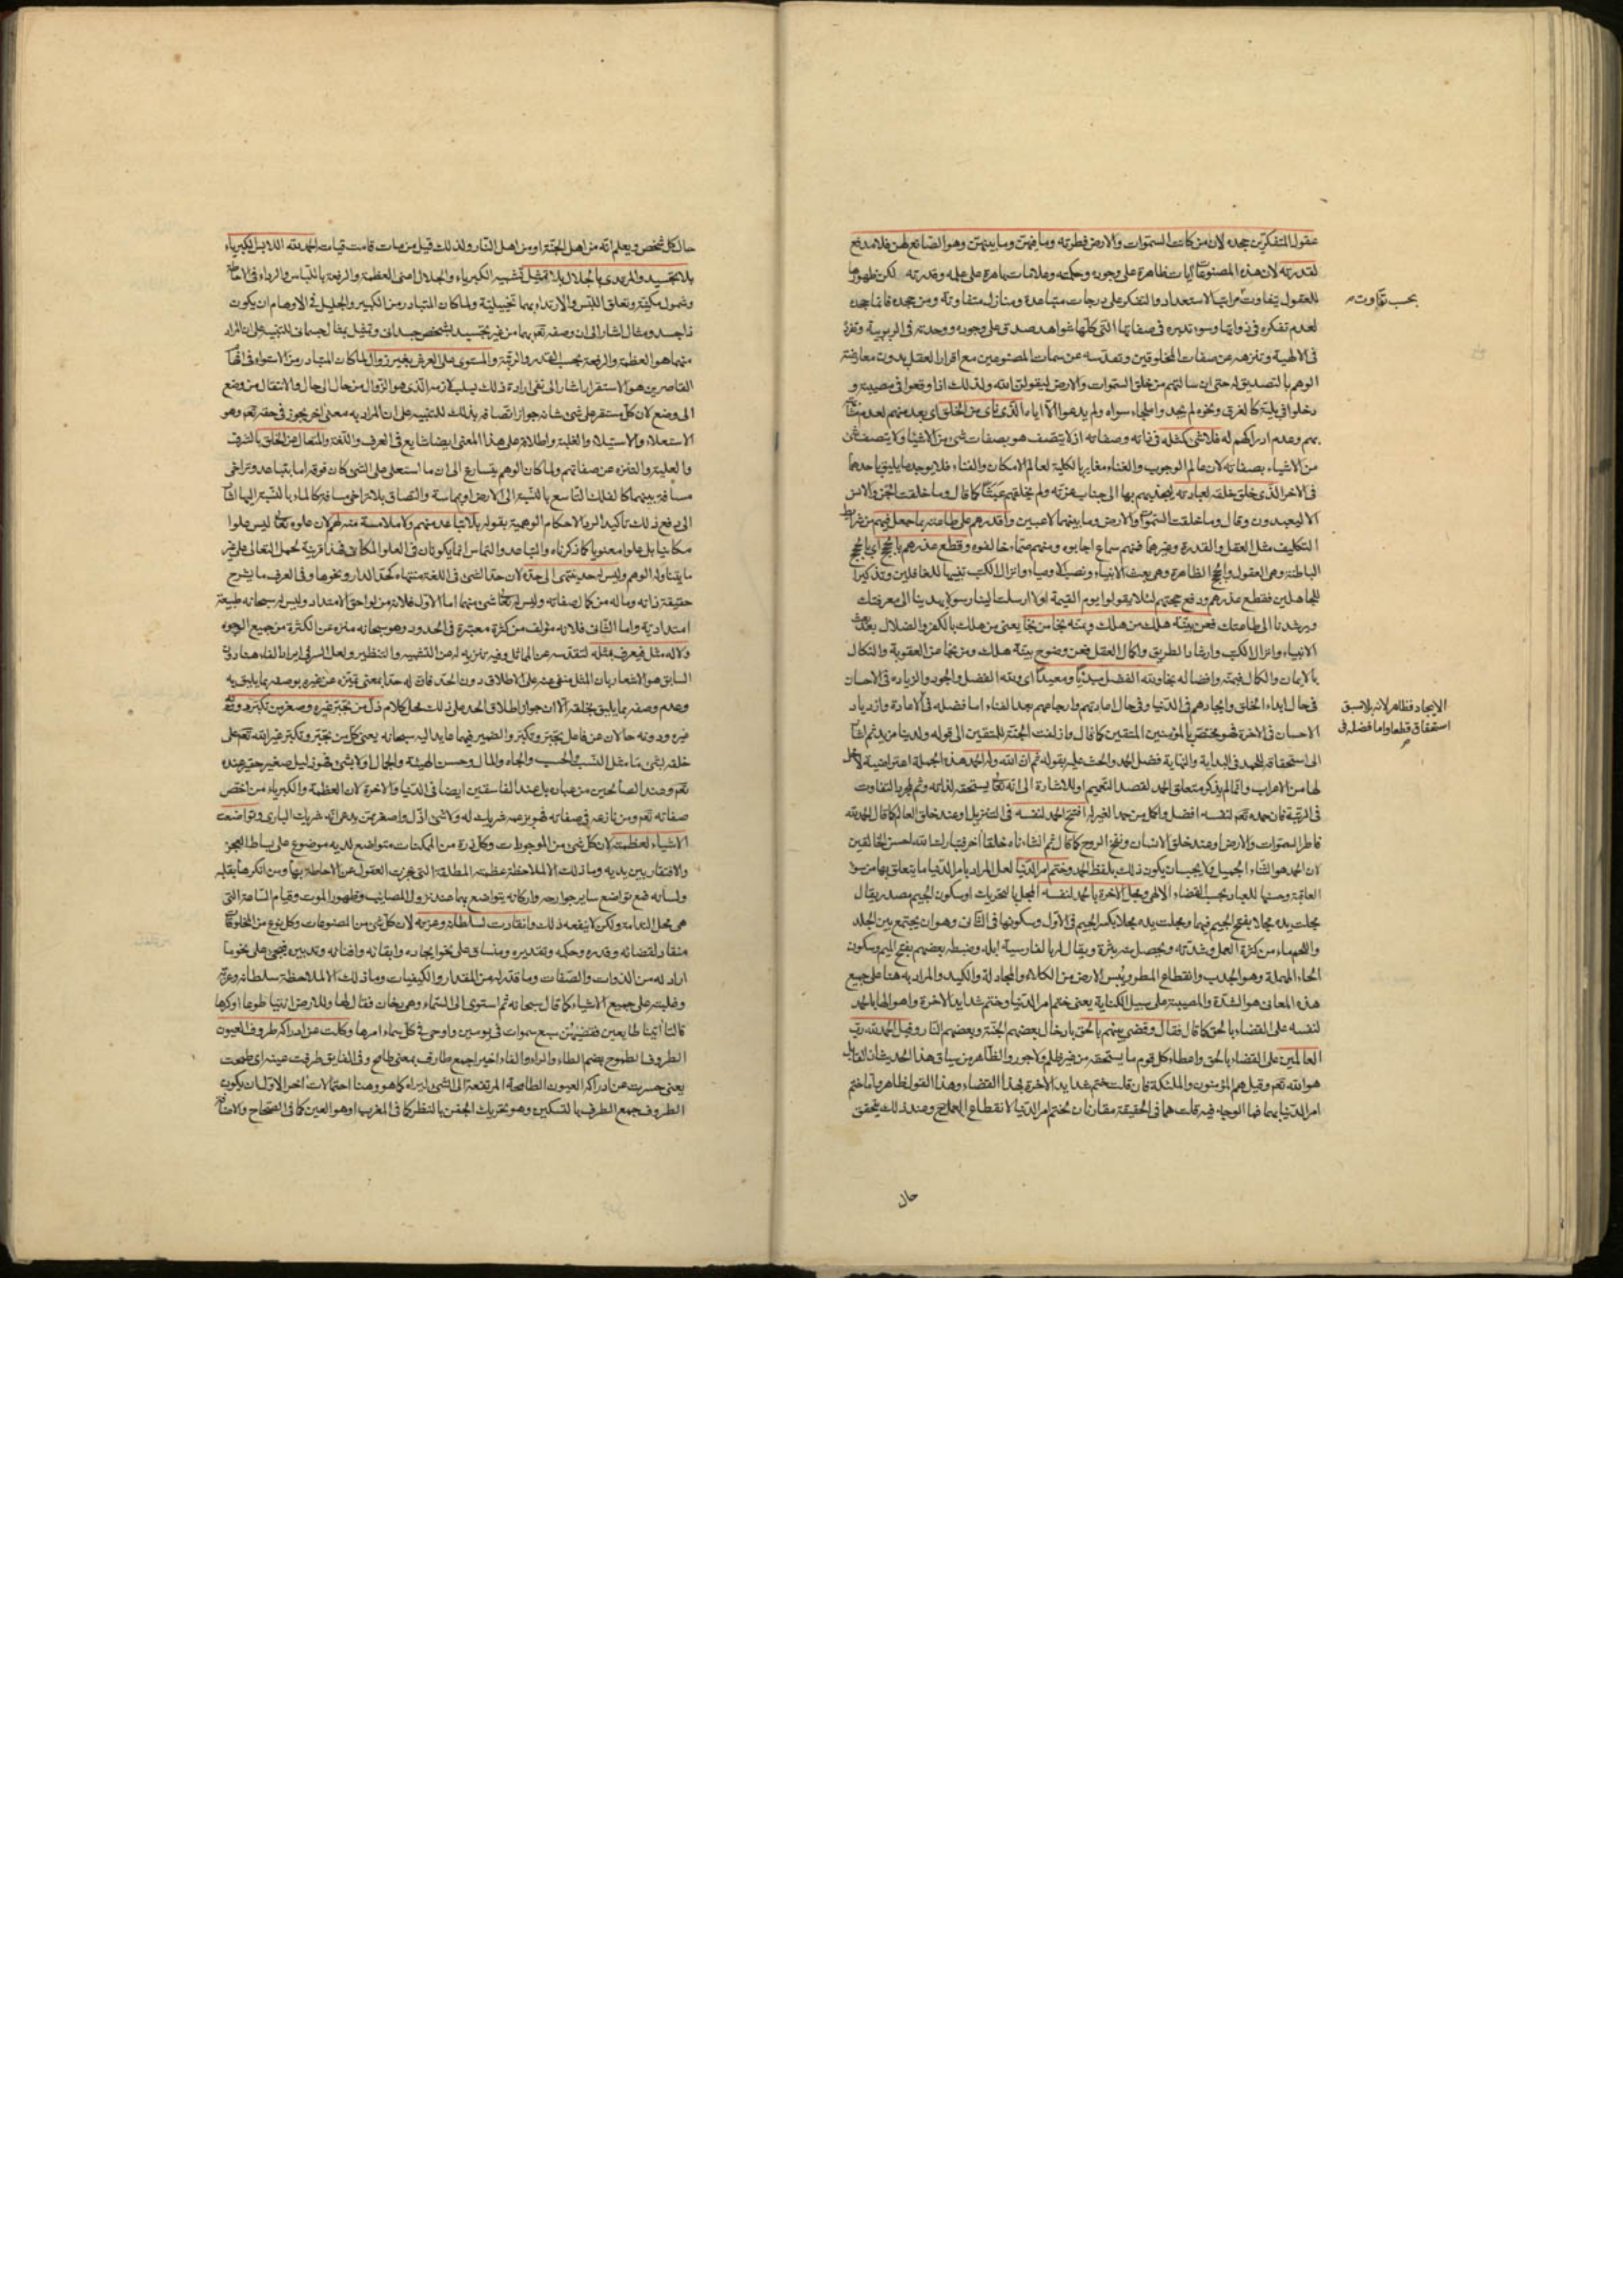 عقول المتفكرين جحده لان من كانت السموات والارض فطرته وما فيهن وما بينهن وهو الصانع لهن فلا مدفع
لقدرته لان هذه المصنوعات ايات ظاهرة على وجوده وحكمته وعلامات باهرة على علمه وقدرته لكن ظهورها
للعقول يتفاوت مراتبها الاستعداد والتفكر على درجات متباعدة ومنازل متفاوتة ومن جحده فانما جحده
بحسب تفاوت
لعدم تفكره في ذواتها وسوء تدبره في صفاتها التي كلها شواهد صدق على وجوده ووحدته في الربوبية وتفرده
في الالهية وتنزهه عن صفات المخلوقين وتقدسه عن سمات المصنوعين مع اقرار العقل بدون معارضة
الوهم بالتصديق له حتى ان سالتهم من خلق السموات والارض ليقولن الله ولذلك اذا وقعوا في مصيبة و
دخلوا في بلية كالغرق ونحوه لم يجدوا ملجاء سواه ولم يدعوا الا اياه الذي نأى من الخلق اي بعد منهم لعدم
وعدم ادراكهم له فلا شئ كمثله في ذاته وصفاته اذ لا يتصف هو بصفات شئ من الاشياء ولا يتصف شئ
من الاشياء بصفاته لان عالم الوجوب والغناء مغاير بالكلية لعالم الامكان والفناء فلا يوجد ما يليق باحدهما
في الاخر الذي خلق خلقه لعبادته ليجذبهم بها الى جناب عزته ولم يخلقهم عبثا كما قال وما خلقت الجن والانس
الا ليعبدون وقال وما خلقت السموات والارض وما بينهما لاعبين واقدرهم على طاعته بما جعل فيهم من شرائط
التكليف مثل العقل والقدرة وغيرهما فمنهم سماع اجابوه ومنهم صماء خالفوه وقطع عذرهم بالحجج اي بالحجج
الباطنة وهي العقول والحجج الظاهرة وهي بعث الانبياء ونصب الاوصياء وانزال الكتب تنبيها للغافلين وتذكيرا
للجاهلين فقطع عذرهم ودفع حجتهم لئلا يقولوا يوم القيمة لولا ارسلت الينا رسولا يهدينا الى معرفتك
ويرشدنا الى طاعتك فعن بينة هلك من هلك وبمنه نجا من نجا يعني من هلك بالكفر والضلال بعد بعث
الانبياء وانزال الكتب وارشاد الطريق واكمال العقل فعن وضوح بينة هلك ومن نجا من العقوبة والنكال
بالايمان والكمال فبمنه وافضاله نجا ولله الفضل مبدئا ومعيدا اي ولله الفضل والجود والزيادة في الاحسان
في حال ابداء الخلق وايجادهم في الدنيا وفي حال اعادتهم وارجاعهم بعد الفناء اما فضله في الاعادة وازدياد
الايجاد فظاهر لانه بلا سبق
استحقاق قطعا واما فضله في
الاحسان في الاخرة فهو مختص بالمؤمنين المتقين كما قال وازلفت الجنة للمتقين الى قوله ولدينا مزيد ثم اشار
الى استحقاقه للحمد في البداية والنهاية فضل الحمد والحث عليه بقوله ثم ان الله وله الحمد هذه الجملة اعتراضية لا محل
لها من الاعراب وانما لم يذكر متعلق الحمد لقصد التعميم او للاشارة الى انه تعالى يستحقه لذاته وثم لمجرد التفاوت
في الرتبة فان حمده تعم لنفسه افضل واكمل من حمد الغير له افتتح الحمد لنفسه في التنزيل او عند خلق العالم كما قال الحمد لله
فاطر السموات والارض او عند خلق الانسان ونفخ الروح كما قال ثم انشاناه خلقا اخر فتبارك الله احسن الخالقين
لان الحمد هو الثناء الجميل ولا يجب ان يكون ذلك بلفظ الحمد وختم امر الدنيا لعل المراد بامر الدنيا ما يتعلق بها من سوء
العاقبة وحسنها للعباد بحسب القضاء الالهي ومحل الاخرة بالحمد لنفسه المجل بالتحريك او سكون الجيم مصدر يقال
مجلت يده مجلا بفتح الجيم فيهما ومجلت يده مجلا بكسر الجيم في الاول وسكونها في الثاني وهو ان يجتمع بين الجلد
واللحم ماء من كثرة العمل وشدته ويحصل منه بثرة ويقال لها بالفارسية ابله وضبطه بعضهم بفتح الميم وسكون
الحاء المهملة وهو الجدب وانقطاع المطر ويبس الارض من الكلاء والمجادلة والكيد والمراد به هنا على جميع
هذه المعاني هو الشدة والمصيبة على سبيل الكناية يعني ختم امر الدنيا وختم شدايد الاخرة واهوالها بالحمد
لنفسه على القضاء بالحق كما قال فقال وقضي بينهم بالحق بادخال بعضهم الجنة وبعضهم النار وقيل الحمد لله رب
العالمين على القضاء بالحق واعطاء كل قوم ما يستحقه من غير ظلم ولا جور والظاهر من سياق هذا الحديث ان القايل
هو الله تعم وقيل هم المؤمنون والملئكة فان قلت ختم شدايد الاخرة بهذا القضاء وهذا القول ظاهر واما ختم
امر الدنيا بهما فما الوجه فيه قلت هما في الحقيقة مقارنان بختم امر الدنيا لانقطاع العلاج وعند ذلك يتحقق
حال
حال كل شخص ويعلم انه من اهل الجنة او من اهل النار ولذلك قيل من مات قامت قيامته الحمد لله اللابس الكبرياء
بلا تجسيد والمرتدي بالجلال بلا تمثيل تشبيه الكبرياء والجلال اعني العظمة والرفعة باللباس والرداء في الاحاطة
وشمول مكنية وتعلق اللبس والارتداء بهما تخييلية ولما كان المتبادر من الكبير والجليل في الاوهام ان يكون
ذا جسد ومثال اشار الى ان وصفه تعم بهما من غير تجسيد بشخص جسداني وتمثيل بمثال جسماني للتنبيه على ان المراد
منهما هو العظمة والرفعة بحسب القدر والرتبة والمستوي على العرش بغير زوال لما كان المتبادر من الاستواء في افهام
القاصرين هو الاستقرار اشار الى نفي ارادة ذلك بسلب لازمه الذي هو الزوال من حال الى حال والانتقال من وضع
الى وضع لان كل مستقر على شئ شانه جواز اتصافه بذلك للتنبيه على ان المراد به معنى اخر يجوز في حقه تعم وهو
الاستعلاء والاستيلاء والغلبة واطلاقه على هذا المعنى ايضا شايع في العرف واللغة والمتعال عن الخلق بالشرف
والعلية والتنزه عن صفاتهم ولما كان الوهم يتسارع الى ان ما استعلى على الشئ كان فوقه اما بتباعد وتراخي
مسافة بينهما كالفلك التاسع بالنسبة الى الارض او بماسة والتصاق بلا تراخي مسافة كالماء بالنسبة اليها اشار
الى دفع ذلك تاكيدا لرد الاحكام الوهمية بقوله بلا تباعد منهم ولا ملامسة منه لهم لان علوه تعالى ليس علوا
مكانيا بل علوا معنويا كما ذكرناه والتباعد والتماس انما يكونان في العلو المكاني فهذا قرينة لحمل التعالي على غير
ما يتناوله الوهم وليس له حد ينتهي الى حده لان حد الشئ في اللغة منتهاه كحد الدار ونحوها وفي العرف ما يشرح
حقيقة ذاته وما له من كمال صفاته وليس له تعالى شئ منهما اما الاول فلانه من لواحق الامتداد وليس له سبحانه طبيعة
امتدادية واما الثاني فلانه مؤلف من كثرة معتبرة في الحدود وهو سبحانه منزه عن الكثرة من جميع الوجوه
ولا له مثل فيعرف بمثله لتقدسه عن المماثل وفيه تنزيه له عن التشبيه والتنظير ولعل السر في ايراد الفاء هنا دون
السابق هو الاشعار بان المثل منفي عنه على الاطلاق دون الحد فان له حدا بمعنى تميزه عن غيره بوصفه بما يليق به
وعدم وصفه بما يليق بخلقه الا ان جواز اطلاق الحد على ذلك محل كلام ذل من تجبر غيره وصغر من تكبر دونه
غيره ودونه حالان عن فاعل تجبر وتكبر والضمير فيهما عايد اليه سبحانه يعني كل من تجبر وتكبر غير الله تعم على
خلقه بشئ ما مثل النسب والحسب والجاه والمال وحسن الهيئة والجمال او لا بشئ فهو ذليل صغير حقير عنده
تعم وعند الصالحين من عباده بل عند الفاسقين ايضا في الدنيا والاخرة لان العظمة والكبرياء من اخص
صفاته تعم ومن نازعه في صفاته فهو بزعمه شريك له ولا شئ اذل واصغر ممن يدعي انه شريك الباري وتواضعت
الاشياء لعظمته لان كل شئ من الموجودات وكل ذرة من الممكنات متواضع لديه موضوع على بساط العجز
والافتقار بين يديه وما ذلك الا لملاحظة عظمته المطلقة التي عجزت العقول عن الاحاطة بها ومن انكرها بقلبه
ولسانه فمع تواضع ساير جوارحه واركانه يتواضع بهما عند نزول المصايب وظهور الموت وقيام الساعة التي
هي محل الندامة ولكن لا ينفعه ذلك وانقادت لسلطانه وعزته لان كل شئ من المصنوعات وكل نوع من المخلوقات
منقاد لقضائه وقدره وحكمه وتقديره ومنساق على نحو ايجاده وابقائه وافنائه وتدبيره فيجئ على نحو ما
اراد له من الذوات والصفات وما قدر له من المقدار والكيفيات وما ذلك الا لملاحظة سلطانه وعزته
وغلبته على جميع الاشياء كما قال سبحانه ثم استوى الى السماء وهي دخان فقال لها وللارض ائتيا طوعا او كرها
قالتا اتينا طايعين فقضيهن سبع سموات في يومين واوحى في كل سماء امرها وكلت عن ادراكه طروف العيون
الطروف الطموح بضم الطاء والراء والفاء اخيرا جمع طارف بمعنى طامح وفي الفايق طرفت عينه اي طمحت
يعني حسرت عن ادراكه العيون الطامحة المرتفعة الى الشئ لتراه كما هو وهنا احتمالات اخر الاول ان يكون
الطروف جمع الطرف بالتسكين وهو تحريك الجفن بالنظر كما في المغرب او هو العين كما في الصحاح والاضافة